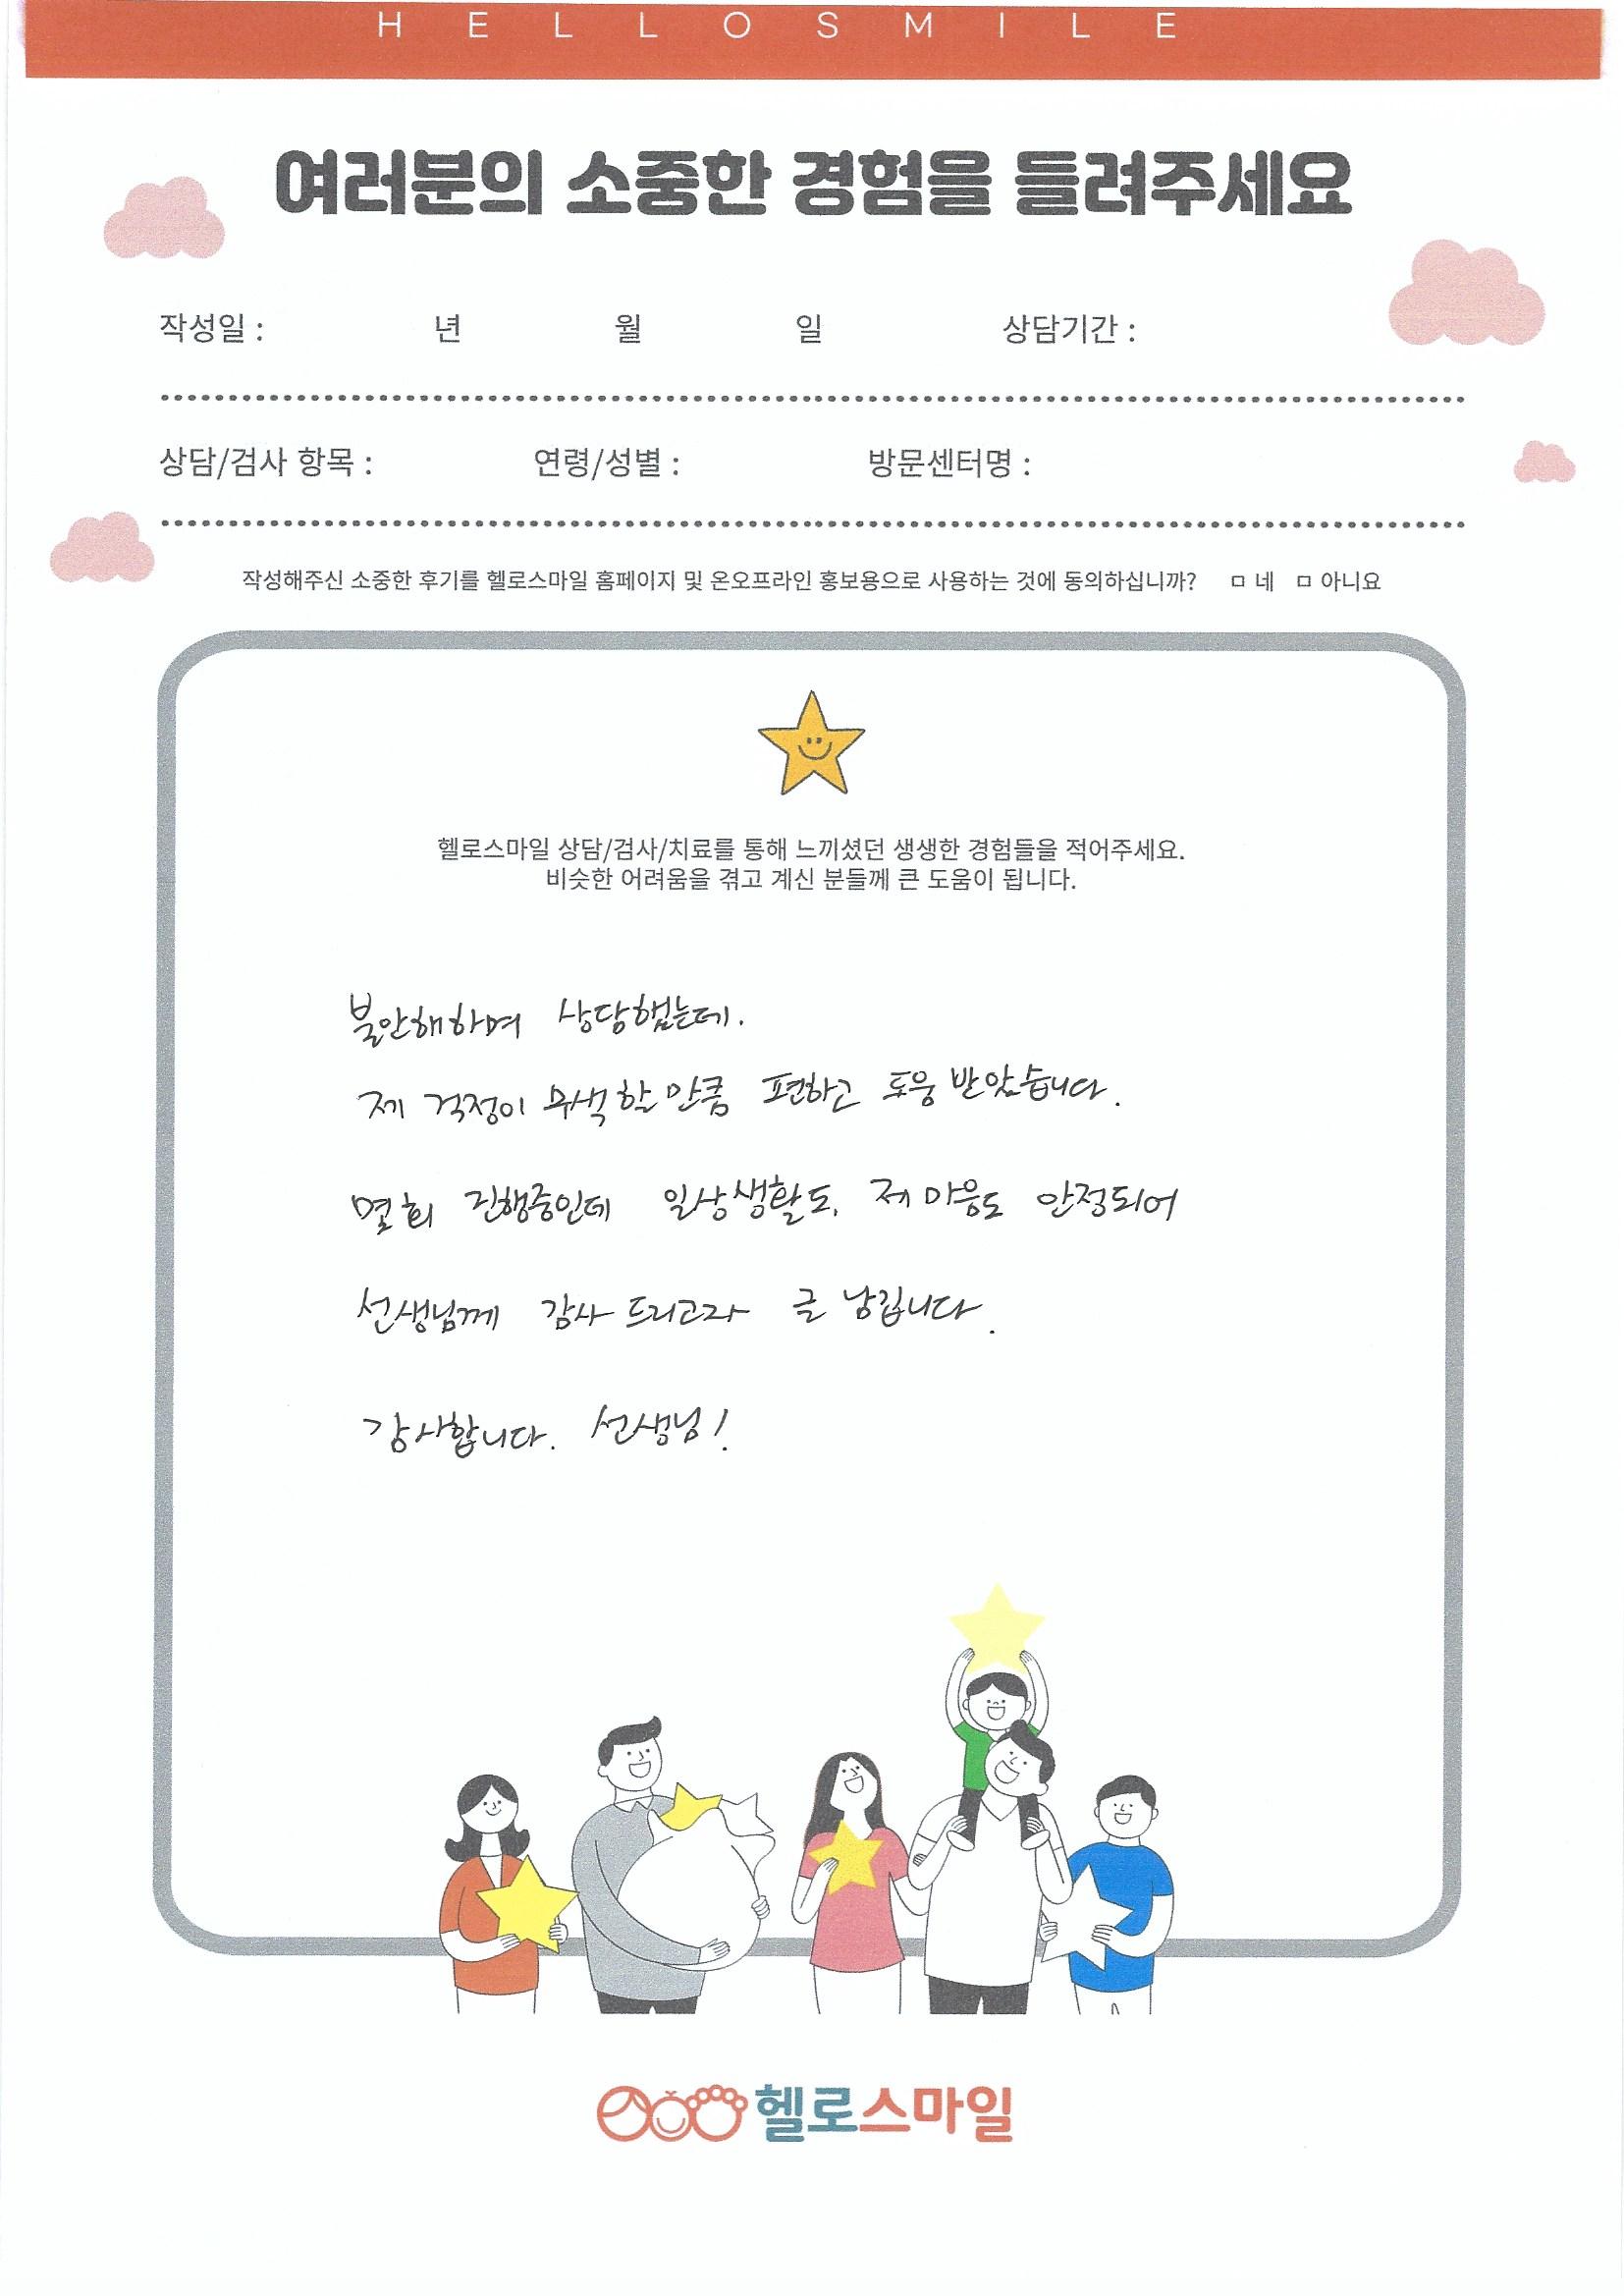 HELLOSMILE
여러분의 소중한 경험을 들려주세요
작성일 : 년 월 일 상담기간 :
상담/검사 항목 : 연령/성별 : 방문센터명 :
작성해주신 소중한 후기를 헬로스마일 홈페이지 및 온오프라인 홍보용으로 사용하는 것에 동의하십니까? ㅁ 네 ㅁ 아니요
헬로스마일 상담/검사/치료를 통해 느끼셨던 생생한 경험들을 적어주세요.
비슷한 어려움을 겪고 계신 분들께 큰 도움이 됩니다.
불안해하며 상담했는데.
제 걱정이 무색할 만큼 편하고 도움 받았습니다.
몇 회 진행중인데 일상생활도, 제 마음도 안정되어
선생님께 감사 드리고자 글 남깁니다.
감사합니다. 선생님!
헬로스마일